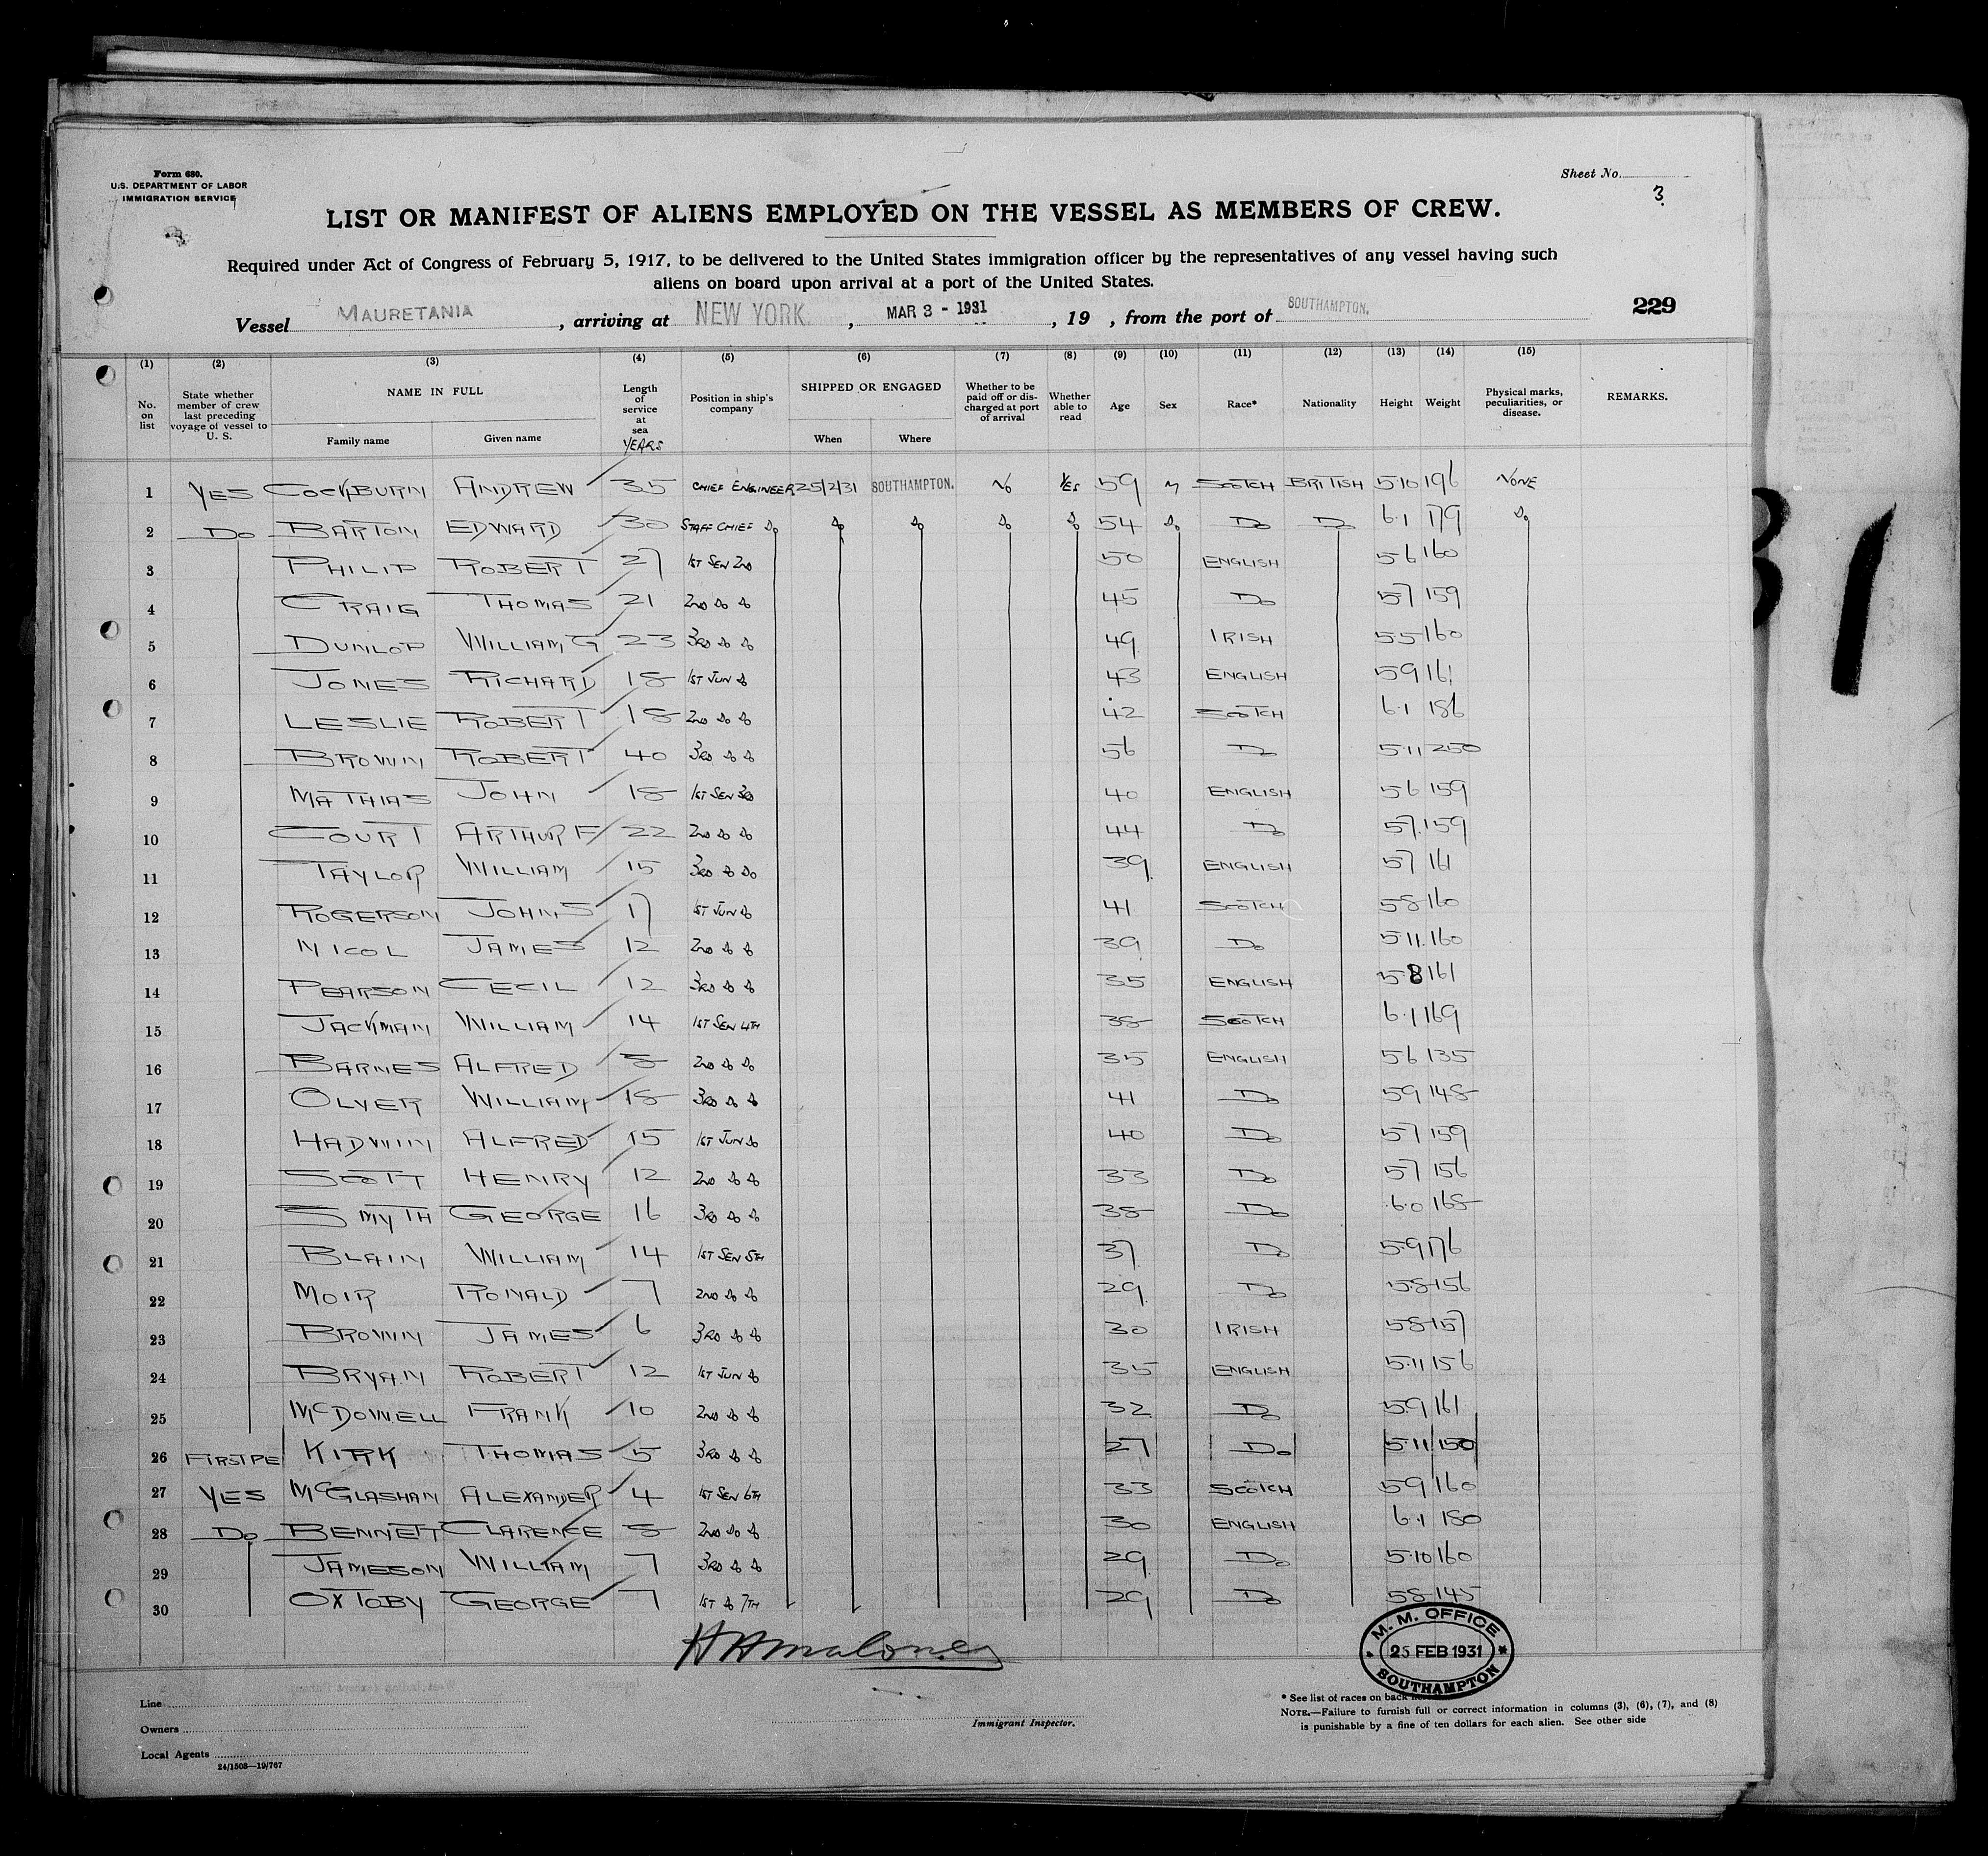 Form 680.
U.S. DEPARTMENT OF LABOR
IMMIGRATION SERVICE
Sheet No.
3
LIST OR MANIFEST OF ALIENS EMPLOYED ON THE VESSEL AS MEMBERS OF CREW.
Required under Act of Congress of February 5, 1917, to be delivered to the United States immigration officer by the representatives of any vessel having such
aliens on board upon arrival at a port of the United States.
Vessel MAURETANIA, arriving at NEW YORK, MAR 3 - 1931, 19 , from the port of SOUTHAMPTON. 229
(1) (2) (3) (4) (5) (6) (7) (8) (9) (10) (11) (12) (13) (14) (15)
No. on list State whether member of crew last preceding voyage of vessel to U. S. NAME IN FULL Family name Given name Length of service at sea YEARS Position in ship's company SHIPPED OR ENGAGED When Where Whether to be paid off or discharged at port of arrival Whether able to read Age Sex Race* Nationality Height Weight Physical marks, peculiarities, or disease. REMARKS.
1 YES COCKBURN ANDREW 35 CHIEF ENGINEER 25/2/31 SOUTHAMPTON. No YES 59 M SCOTCH BRITISH 5·10 196 NONE
2 Do BARTON EDWARD 30 STAFF CHIEF Do Do Do Do Do 54 Do Do Do 6·1 179 Do
3 PHILIP ROBERT 27 1ST SEN 2ND 50 ENGLISH 5 6 160
4 CRAIG THOMAS 21 2ND Do Do 45 Do 5 7 159
5 DUNLOP WILLIAM G 23 3RD Do Do 49 IRISH 5 5 160
6 JONES RICHARD 18 1ST JUN Do 43 ENGLISH 5 9 161
7 LESLIE ROBERT 18 2ND Do Do 42 SCOTCH 6·1 186
8 BROWN ROBERT 40 3RD Do Do 56 Do 5·11 250
9 MATHIAS JOHN 18 1ST SEN 3RD 40 ENGLISH 5 6 159
10 COURT ARTHUR F 22 2ND Do Do 44 Do 5 7 159
11 TAYLOR WILLIAM 15 3RD Do Do 39 ENGLISH 5 7 161
12 ROGERSON JOHN S 17 1ST JUN Do 41 SCOTCH 5 8 160
13 NICOL JAMES 12 2ND Do Do 39 Do 5 11 160
14 PEARSON CECIL 12 3RD Do Do 35 ENGLISH 5 8 161
15 JACKMAN WILLIAM 14 1ST SEN 4TH 38 SCOTCH 6·1 169
16 BARNES ALFRED 8 2ND Do Do 35 ENGLISH 5 6 135
17 OLVER WILLIAM 18 3RD Do Do 41 Do 5 9 148
18 HADWIN ALFRED 15 1ST JUN Do 40 Do 5 7 159
19 SCOTT HENRY 12 2ND Do Do 33 Do 5 7 156
20 SMYTH GEORGE 16 3RD Do Do 38 Do 6·0 168
21 BLAIN WILLIAM 14 1ST SEN 5TH 37 Do 5·9 176
22 MOIR RONALD 7 2ND Do Do 29 Do 5·8 156
23 BROWN JAMES 6 3RD Do Do 30 IRISH 5 8 157
24 BRYAN ROBERT 12 1ST JUN Do 35 ENGLISH 5·11 156
25 McDOWELL FRANK 10 2ND Do Do 32 Do 5·9 161
26 FIRST PE KIRK THOMAS 5 3RD Do Do 27 Do 5·11 150
27 YES McGLASHAN ALEXANDER 4 1ST SEN 6TH 33 SCOTCH 5 9 160
28 Do BENNETT CLARENCE 8 2ND Do Do 30 ENGLISH 6·1 180
29 JAMESON WILLIAM 7 3RD Do Do 29 Do 5·10 160
30 OXTOBY GEORGE 7 1ST Do 7TH 29 Do 5 8 145
M. M. OFFICE
25 FEB 1931
SOUTHAMPTON
Line
Owners
Local Agents
24/1508—19/767
Immigrant Inspector.
* See list of races on back
NOTE.—Failure to furnish full or correct information in columns (3), (6), (7), and (8)
is punishable by a fine of ten dollars for each alien. See other side